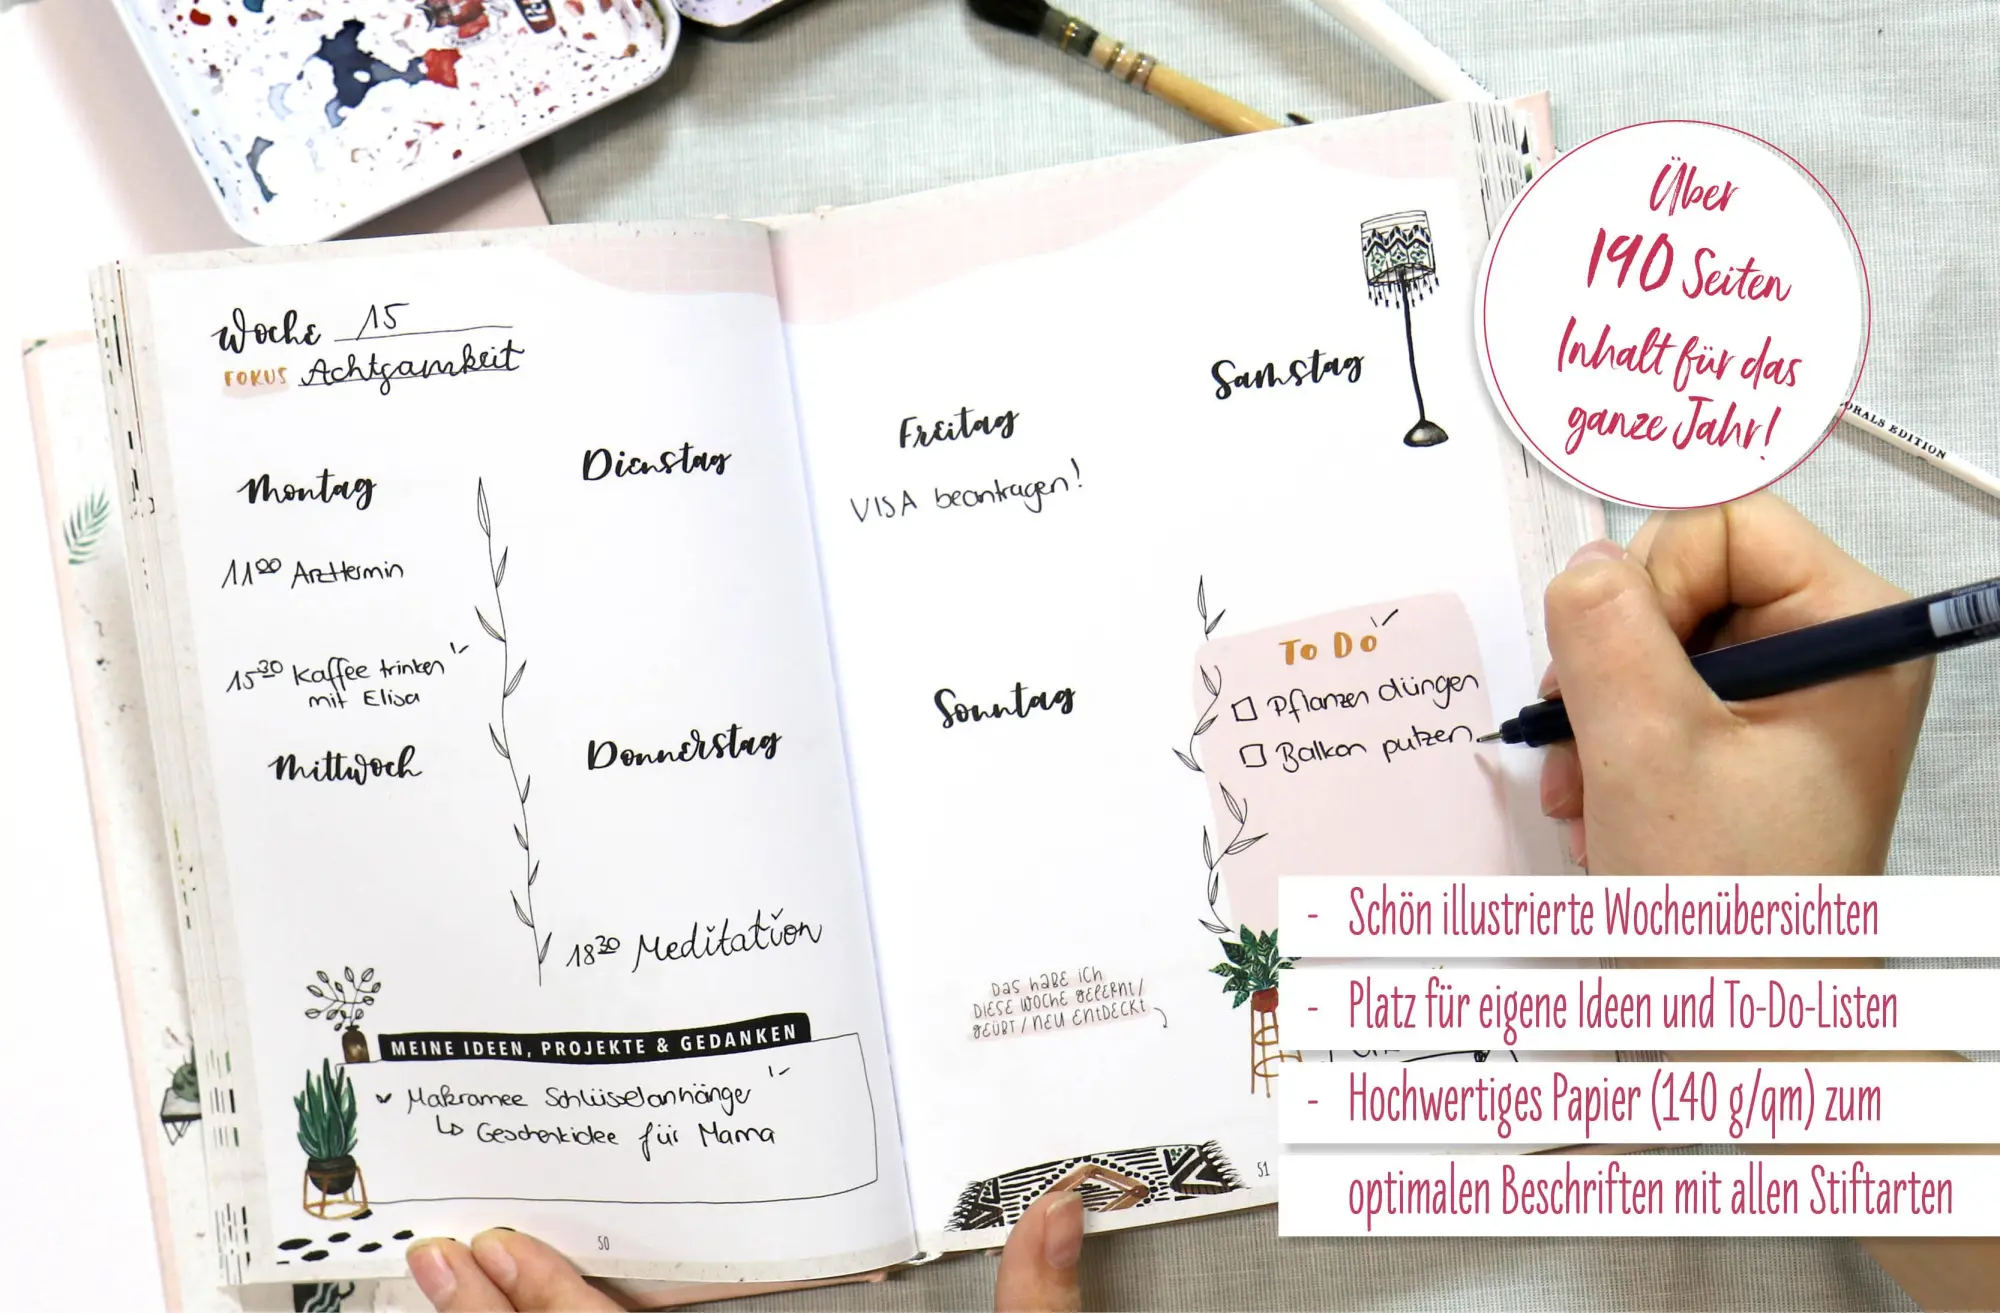 Woche 15
FOKUS Achtsamkeit
Montag
11⁰⁰ Arzttermin
15³⁰ Kaffee trinken
mit Elisa
Dienstag
Mittwoch
Donnerstag
18³⁰ Meditation
MEINE IDEEN, PROJEKTE & GEDANKEN
Makramee Schlüsselanhänger
↳ Geschenkidee für Mama
50
Freitag
VISA beantragen!
Samstag
Sonntag
To Do
☐ Pflanzen düngen
☐ Balkon putzen
DAS HABE ICH
DIESE WOCHE GELERNT/
GEÜBT/NEU ENTDECKT
51
Über
190 Seiten
Inhalt für das
ganze Jahr!
ORALS EDITION
- Schön illustrierte Wochenübersichten
- Platz für eigene Ideen und To-Do-Listen
- Hochwertiges Papier (140 g/qm) zum
optimalen Beschriften mit allen Stiftarten